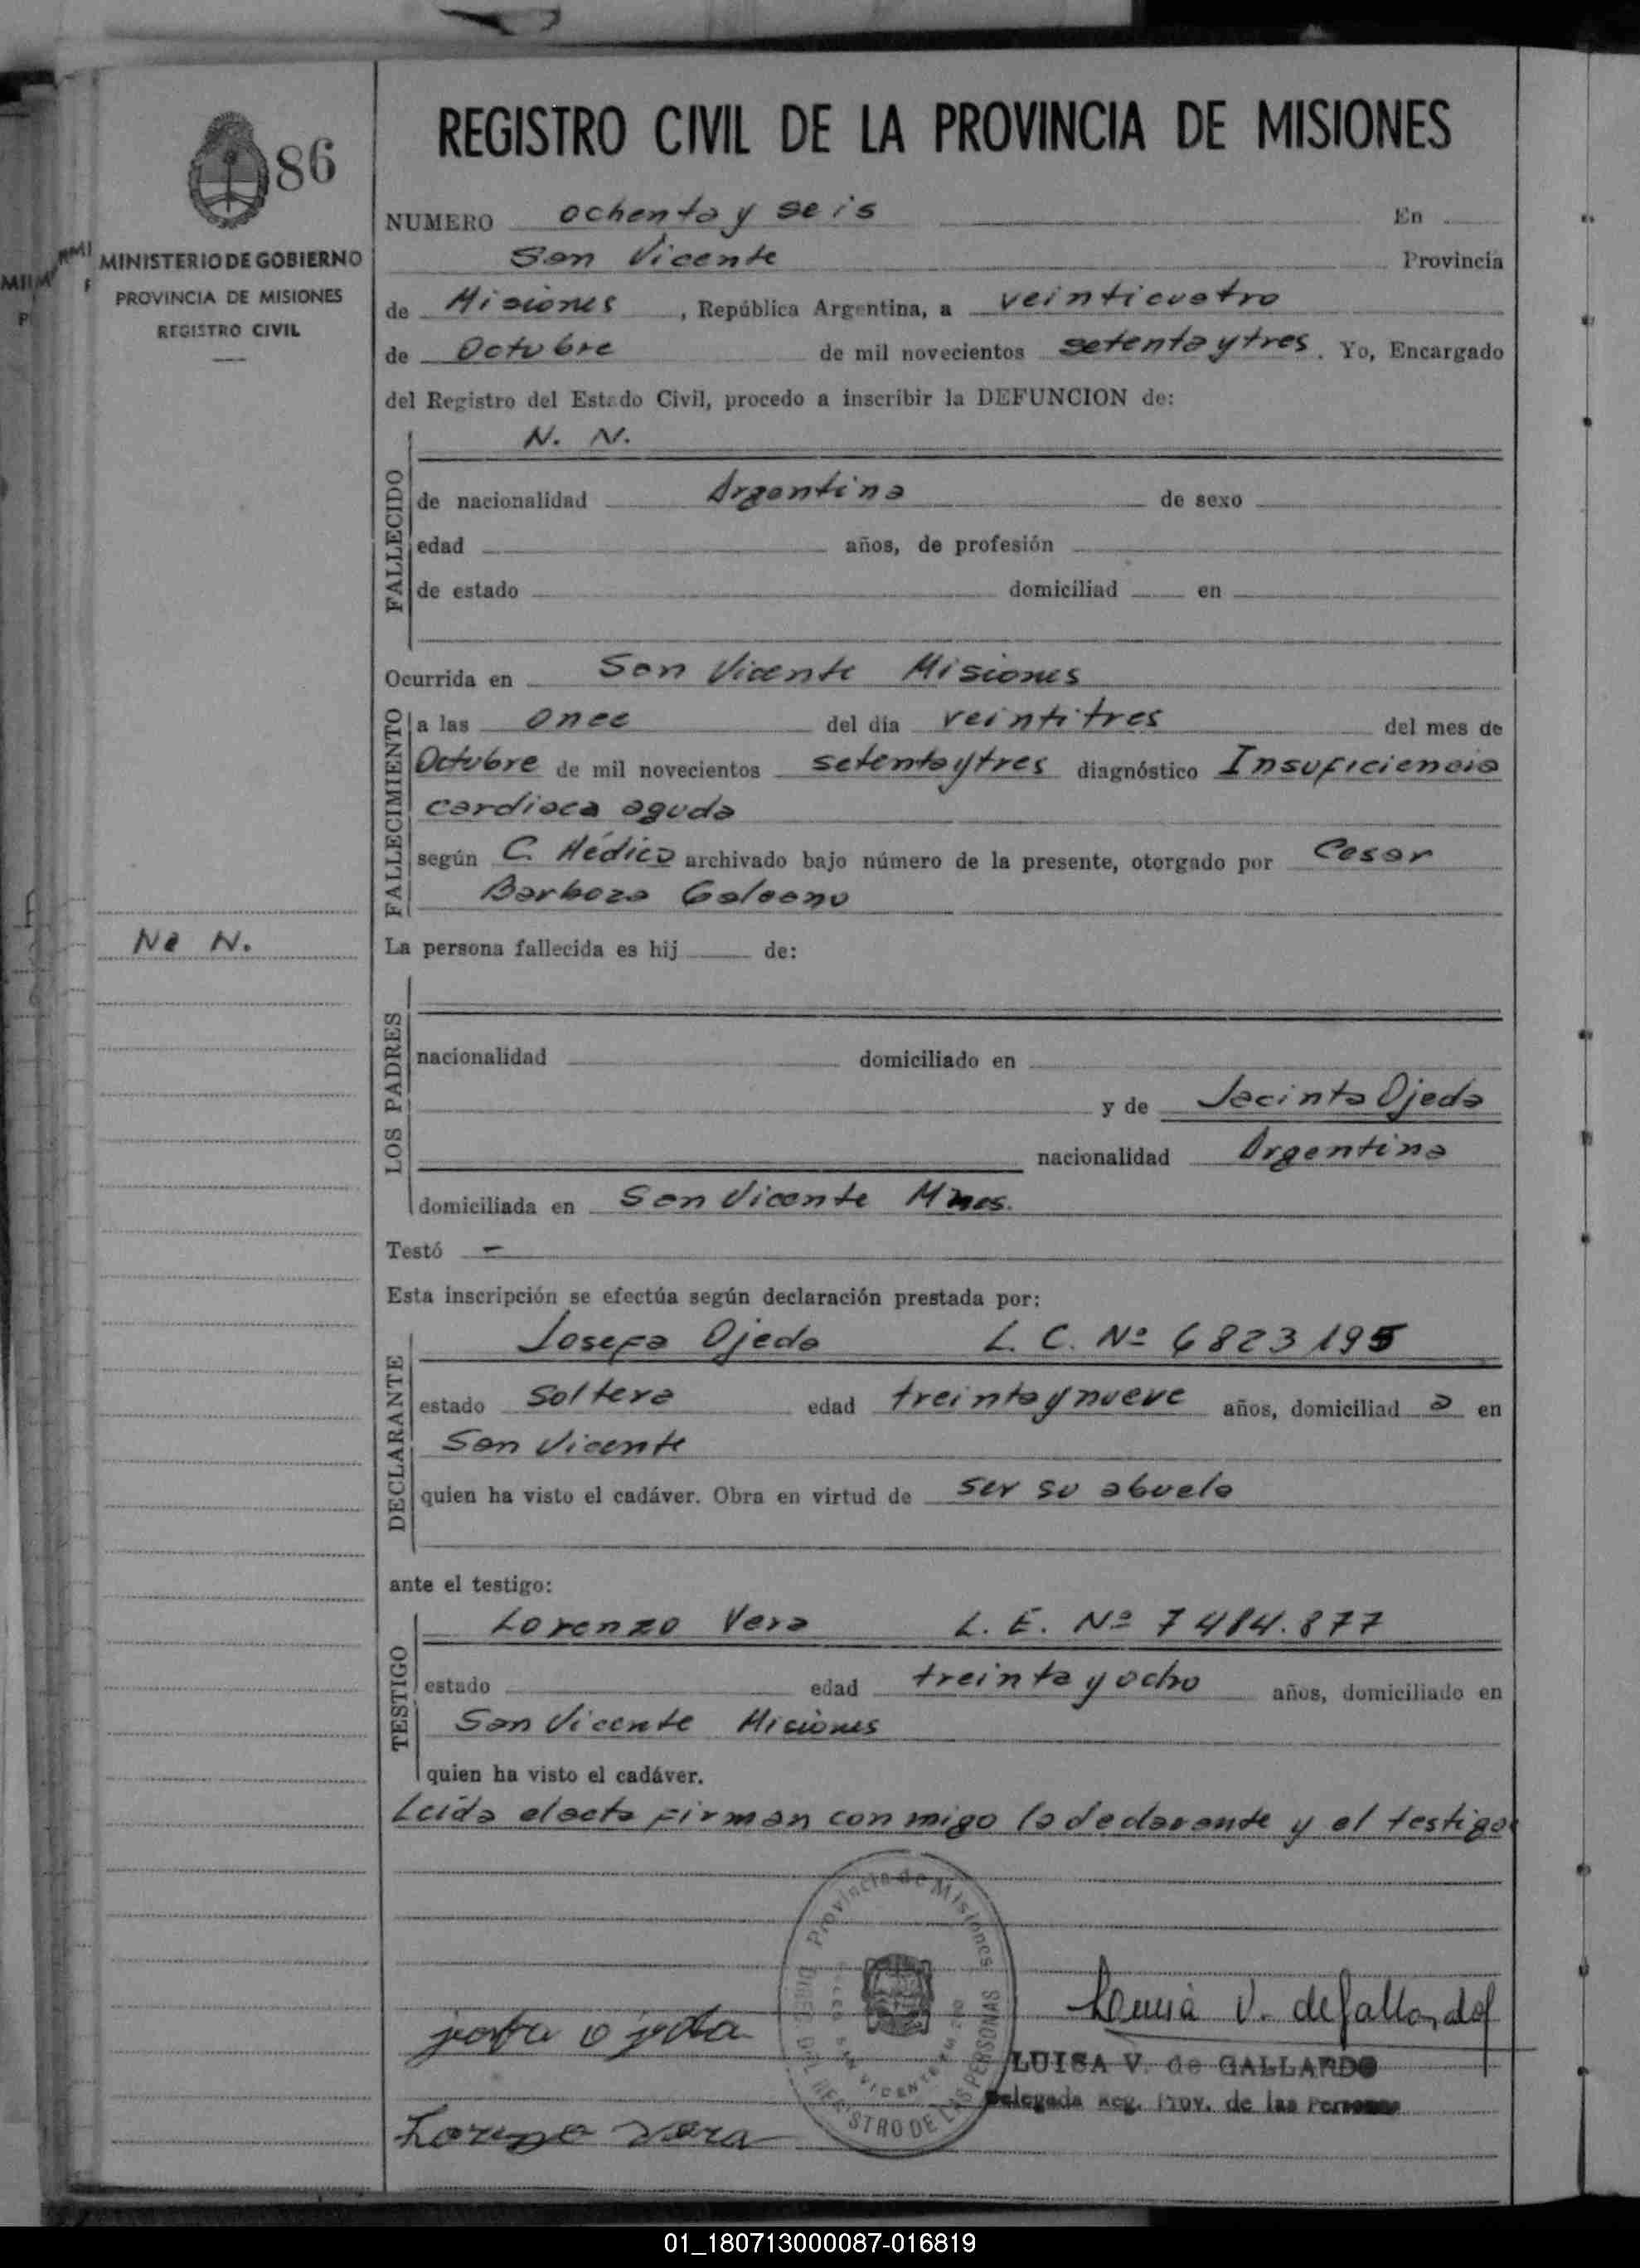 REGISTRO CIVIL DE LA PROVINCIA DE MISIONES
86
MINISTERIO DE GOBIERNO
PROVINCIA DE MISIONES
REGISTRO CIVIL
NUMERO ochenta y seis En
San Vicente Provincia
de Misiones, República Argentina, a veinticuatro
de Octubre de mil novecientos setenta y tres. Yo, Encargado
del Registro del Estado Civil, procedo a inscribir la DEFUNCION de:
N. N.
FALLECIDO
de nacionalidad Argentina de sexo
edad años, de profesión
de estado domiciliad en
Ocurrida en San Vicente Misiones
FALLECIMIENTO
a las once del día veintitres del mes de
Octubre de mil novecientos setenta y tres diagnóstico Insuficiencia
cardiaca aguda
según C. Médico archivado bajo número de la presente, otorgado por Cesar
Barboza Galeano
N. N.
La persona fallecida es hij de:
LOS PADRES
nacionalidad domiciliado en
y de Jacinta Ojeda
nacionalidad Argentina
domiciliada en San Vicente Mnes.
Testó -
Esta inscripción se efectúa según declaración prestada por:
DECLARANTE
Josefa Ojeda L. C. Nº 6823195
estado Soltera edad treinta y nueve años, domiciliad a en
San Vicente
quien ha visto el cadáver. Obra en virtud de ser su abuela
ante el testigo:
TESTIGO
Lorenzo Vera L. E. Nº 7484.877
estado edad treinta y ocho años, domiciliado en
San Vicente Misiones
quien ha visto el cadáver.
Leida el acta firman conmigo la declarante y el testigo
Provincia de Misiones
REGISTRO DE LAS PERSONAS
SAN VICENTE
Luisa V. de Gallardo
LUISA V. de GALLARDO
Delegada Reg. Prov. de las Personas
Lorenzo Vera
01_180713000087-016819